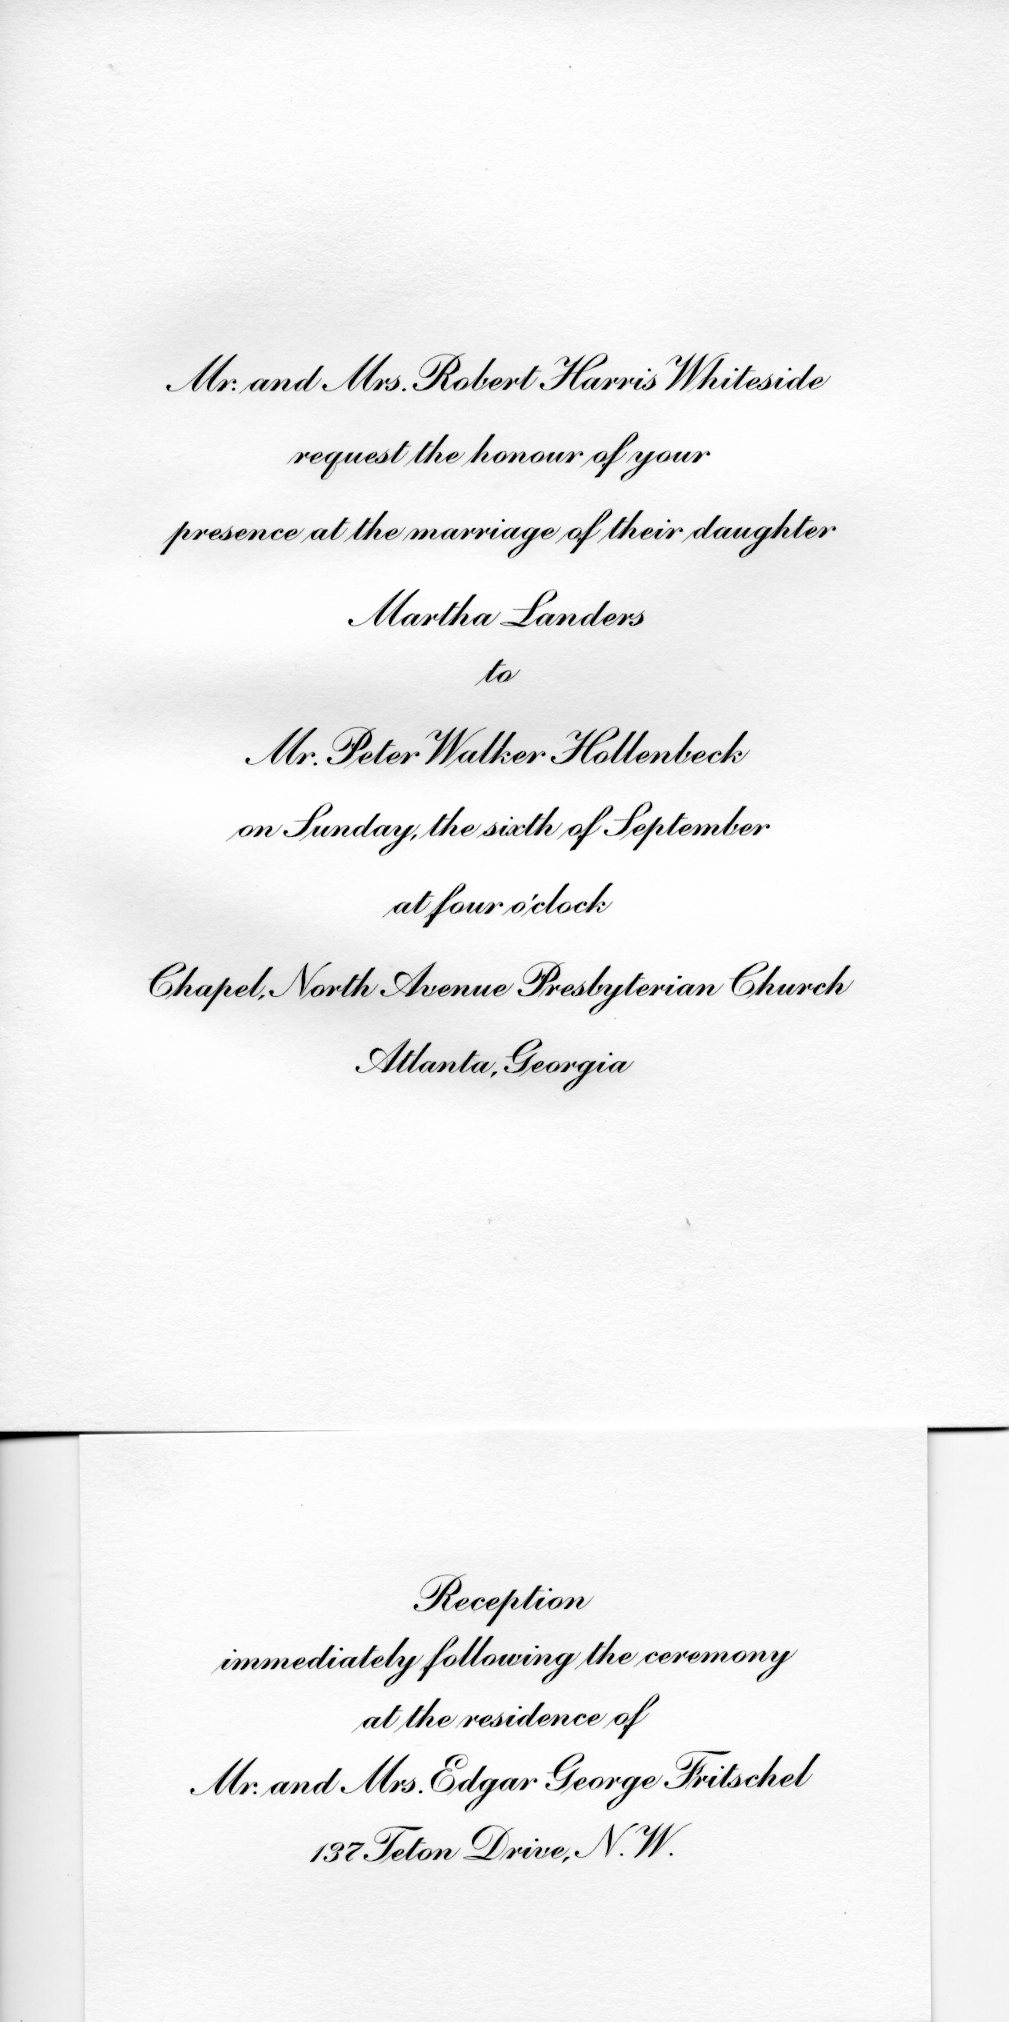 Mr. and Mrs. Robert Harris Whiteside
request the honour of your
presence at the marriage of their daughter
Martha Landers
to
Mr. Peter Walker Hollenbeck
on Sunday, the sixth of September
at four o'clock
Chapel, North Avenue Presbyterian Church
Atlanta, Georgia
Reception
immediately following the ceremony
at the residence of
Mr. and Mrs. Edgar George Fritschel
137 Teton Drive, N.W.